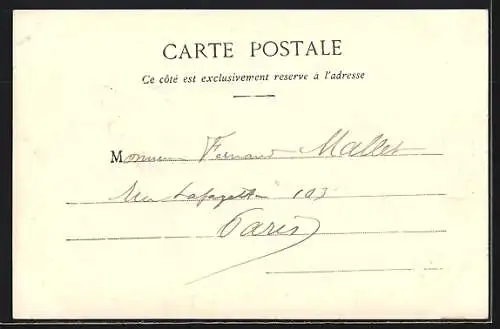 CARTE POSTALE
Ce côté est exclusivement reserve à l'adresse
Monsieur Fernand Mallet
Rue Lafayette 103
Paris